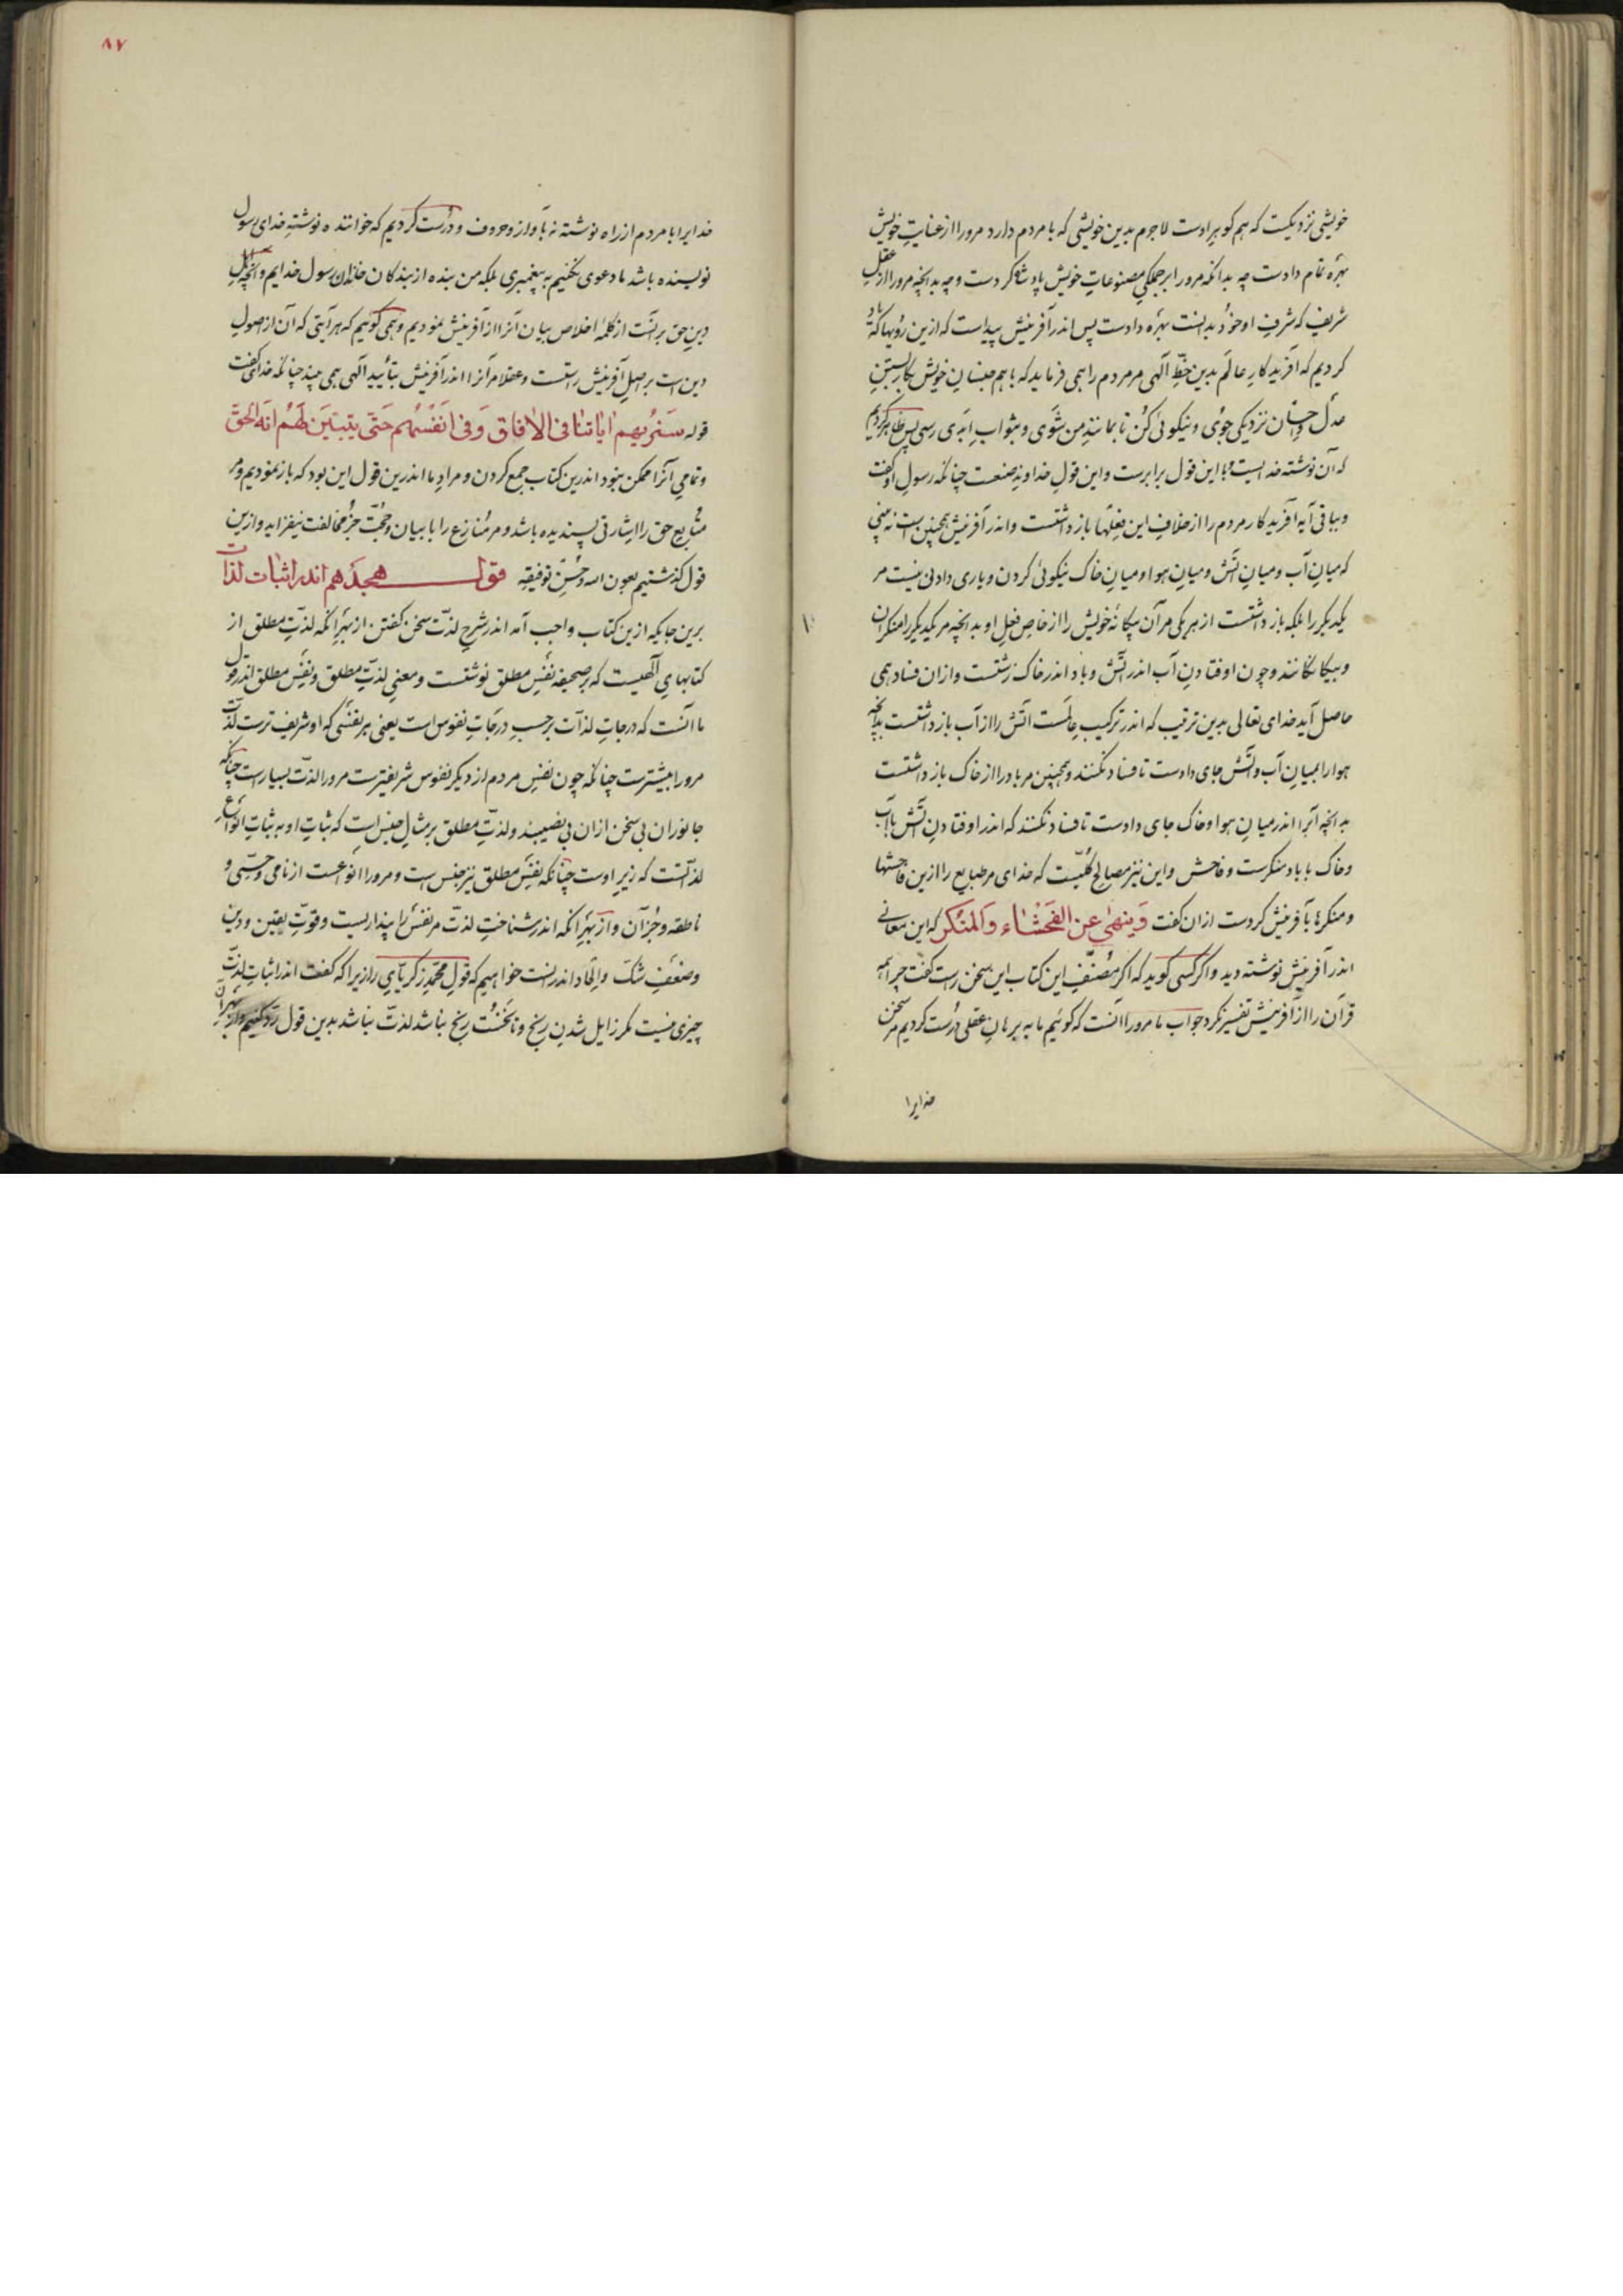 خویشی نزدیکیست که هم گوهر اوست لاجرم بدین خویشی که با مردم دارد مرورا از عنایتِ خویش
بهرهٔ تمام دادست چه بدانکه مرورا بر جملگیِ مصنوعاتِ خویش پادشا کردست و چه بدانچه مرورا از عقلِ
شریف که شرفِ او خود بدانست بهره دادست پس اندر آفرینش پیداست که ازین رویها که یاد
کردیم که آفریدکارِ عالَم بدین خطِّ الهی مر مردم را همی فرماید که با هم جنسانِ خویش بکار بستنِ
عدل و احسان نزدیکی جوی و نیکوئی کن تا بمانندِ من شَوی و بثوابِ ابدی رسی پس ظاهر کردیم
که آن نوشته خدایست و با این قول برابرست و این قولِ خداوندِ صنعت چنانکه رسولِ او گفت
و بباقی آیه آفریدکار مردم را از خلافِ این فعلها بازداشتست و اندر آفرینش همچنین است نه بینی
که میانِ آب و میانِ آتش و میانِ هوا و میانِ خاک نیکوئی کردن و یاری دادنی نیست مر
یکدیگر را بلکه بازداشتست از هر یکی مر آن بیکانهٔ خویش را از خاصِ فعلِ او بدانچه مر یکدیگر را منکران
و بیکانکانند و چون اوفتادنِ آب اندر آتش و باد اندر خاک زشتست و ازان فساد همی
حاصل آید خدای تعالی بدین ترتیب که اندر ترکیبِ عالمست آتش را از آب بازداشتست بدانچه
هوا را بمیانِ آب و آتش جای دادست تا فساد نکنند و همچنین مر باد را از خاک بازداشتست
بدانچه آبرا اندر میانِ هوا و خاک جای دادست تا فساد نکنند که اندر اوفتادنِ آتش بآب
و خاک بباد منکرست و فاحش و این نیز مصالح کلّیّست که خدای مر طبایع را ازین فاحشها
و منکرها بآفرینش کردست ازان گفت وَینهی عن الفَحشاء وَالمنکر که این معانی
اندر آفرینش نوشته دید و اگر کسی گوید که اگر مصنّفِ این کتاب این سخن راست گفت چرا همه
قرآن را از آفرینش تفسیر نکرد جوابِ ما مرورا آنست که گوئیم ما به برهانِ عقلی درست کردیم مر سخن
خدایرا
۸۷
خدایرا با مردم از راه نوشته نه بآواز و حروف و درست کردیم که خوانندهٔ نوشتهِ خدای رسول
نویسنده باشد ما دعوی نکنیم به پیغمبری بلکه من بنده از بندکان خاندان رسول خدایم و آنچه
دینِ حق برانست از کلمهٔ اخلاص بیان آنرا از آفرینش نمودیم و همی گوئیم که هر آیتی که آن از اصولِ
دین است بر اصلِ آفرینش راستست و عقلا مر آنرا اندر آفرینش بتأیید الهی همی بیند چنانکه خدای گفت
قوله سَنُریهم ایاتنا فی الافاق وَفی انَفسُهم حَتی یتبیَّن لَهُم انَّه الحقّ
و تمامیِ آنرا ممکن نبود اندرین کتاب جمع کردن و مرادِ ما اندرین قول این بود که باز نمودیم و مر
متابعِ حق را اشارتی پسندیده باشد و مر منازع را با بیان و حجّت جز مخالفت نیفزاید و ازین
قول گذشتیم بعون الله و حُسنِ توفیقِه قول هجدَهم اندر اثبات لذات
برین جایکه ازین کتاب واجب آمد اندر شرحِ لذّت سخن گفتن از بهرِ آنکه لذّتِ مطلق از
کتابهایِ الهیست که بر صحیفهٔ نفسِ مطلق نوشتست و معنیِ لذّتِ مطلق و نفسِ مطلق اندر قولِ
ما آنست که درجاتِ لذّات بر حسبِ درجاتِ نفوس است یعنی هر نفسی که او شریف ترست لذّت
مرورا بیشترست چنانکه چون نفسِ مردم از دیگر نفوس شریفترست مرورا لذّت بسیارست چنانکه
جانوران بی سخن ازان بی نصیبند و لذّتِ مطلق بر مثالِ جنس است که ثباتِ او به ثباتِ انواعِ
لذّاتست که زیرِ اوست چنانکه نفسِ مطلق نیز جنس است و مرورا انواعست از نامی و حسّی و
ناطقه و جز آن و از بهرِ آنکه اندر شناختِ لذّت مر نفس را بیداریست و قوّتِ یقین و دین
و ضعفِ شکّ و الحاد اندرانست خواهیم که قولِ محمّدِ زکریّایِ رازیرا که گفت اندر اثباتِ لذّت
چیزی نیست مگر زایل شدنِ رنج و تا نخست رنج نباشد لذّت نباشد بدین قول رد کنیم و از بهر آن